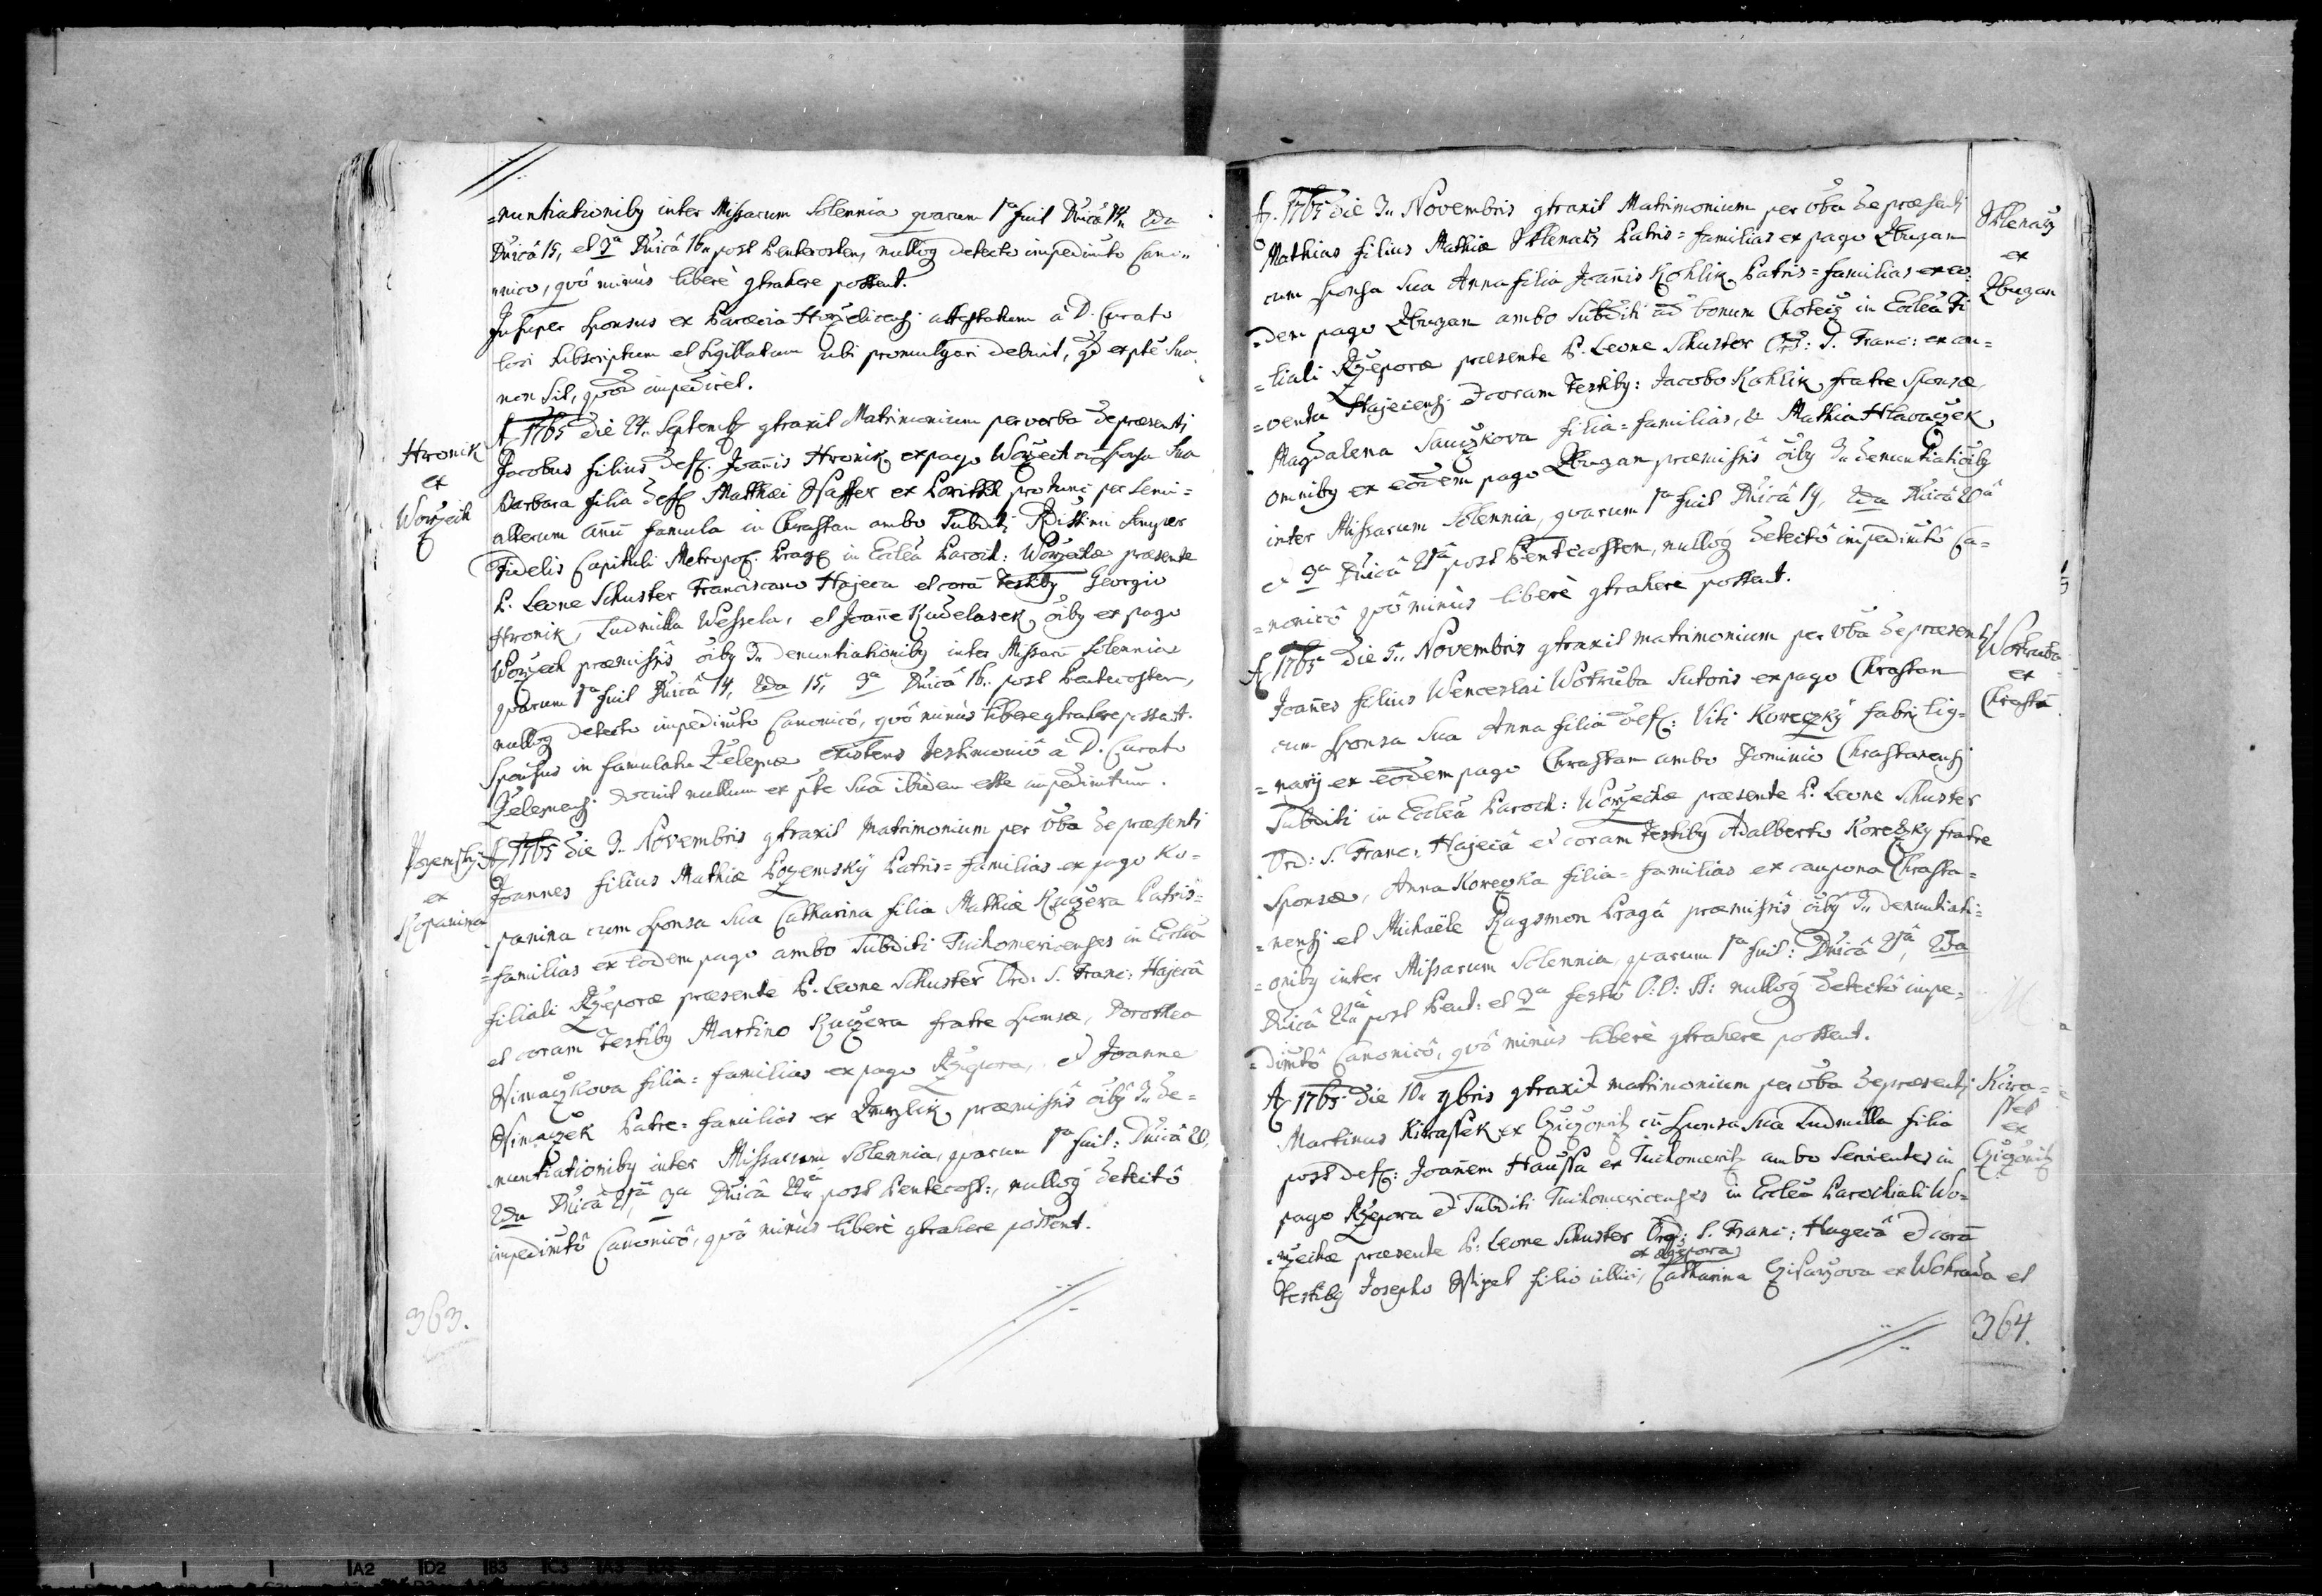 =nuntiationibg inter Missarum Solennia quarum 1a fuit Dnicâ 14, 2da
Dnicâ 15, et 3a Dnicâ 16 post Pentecosten, nullog detecto impedimto Cano=
=nico, quô minùs liberè gtrahere possent.
Insuper Sponsus ex Paraecia attestatum à D. Curato
loci subscriptum et sigillatum ubi promulgari debuit, qd ex pte sua
non sit, quod impediret.
Hronik
ex
Worzech
A 1765 die 24. Septemb gtraxit Matrimonium per verba de praesenti
Jacobus filius def. Joanis Hronik ex pago Worzech cu Sponsa Sua
Barbara filia def Matthaei Staffer ex pro tunc per Semi=
alterum anu famula in Chrastan ambo Subditi Rdissimi Semper
Fidelis Capituli Metropol. Prag in Ecclea Paroch: Worzechae praesente
P. Leone Schuster Franciscano Hajeca et cora testibg Georgio
Hronik, Ludmilla Wessela, et Joane Kudelasek, oibg ex pago
Worzech praemissis oibg 3. Denuntiationibg inter Missaru Solennia
quarum 1a fuit Dnicâ 14, 2da 15, 3a Dnicâ 16. post Pentecosten,
nullog detecto impedimto Canonicô, quô minùs libere gtrahere possent.
Sponsus in famulatu existens testimoniô à D. Curato
docuit nullum ex pte Sua ibidem esse impedimtum.
Pozemsky
ex
Kopanina
A 1765 die 3. Novembris gtraxit Matrimonium per vba de praesenti
Joannes filius Mathiae Pozemský Patris=familias ex pago Ko=
panina cum Sponsa Sua Catharina filia Mathiae Kuczera Patris=
=familias ex eodem pago ambo Subditi Tuchomericenses in Ecclea
filiali Rzeporae praesente P. Leone Schuster Ord: S. Franc: Hajecâ
et coram testibg Martino Kuczera fratre Sponsae, Dorothea
Simaczkova filia=familias ex pago Rzepora, et Joanne
Simaczek Patre=familias ex praemissis oibg 3. De=
nuntiationibg inter Missarum Solennia, quarum 1a fuit: Dnicâ 20,
2da Dnicâ 21â, 3a Dnicâ 22â post Pentecost:, nullog detectô
impedimtô Canonicô, quô minùs liberè gtrahere possent.
363.
A. 1765 die 3. Novembris gtraxit Matrimonium per vba de praesenti
Mathias filius Mathiae Sklenarz Patris=familias ex pago Zbuzan
cum Sponsa Sua Anna filia Joanis Kohlik Patris=familias ex eo=
=dem pago Zbuzan ambo Subditi ad bonum Choteig in Ecclea Fi
=liali Rzeporae praesente P. Leone Schuster Ord: S. Franc: ex con=
=ventu Hajecensi et coram testibg: Jacobo Kohlik, fratre Sponsae,
Magdalena Sauczkova filia=familias, & Mathia Hlavaczek
omnibg ex eodem pago Zbuzan praemissis oibg 3. denuntiatioibg
inter Missarum Solennia, quarum 1a fuit Dnicâ 19, 2da Dnicâ 20â
et 3a Dnicâ 21â post Pentecosten, nullog detectô impedimtô Ca=
=nonicô quô minùs liberè gtrahere possent.
Sklenarz
ex
Zbuzan
A 1765 die 5. Novembris gtraxit matrimonium per vba de praesenti
Joanes filius Wenceslai Wotruba Sutoris ex pago Chrastan
cum Sponsa Sua Anna filia def: Viti Koreczký fabri lig=
=narij ex eodem pago Chrastan ambo Dominio Chrastanensi
Subditi in Ecclea Paroch: Worzechae praesente P. Leone Schuster
Ord: S. Franc: Hajecâ et coram testibg Adalberto Koreczky fratre
Sponsae, Anna Koreczka filia=familias ex caupona Chrasta=
=nensi et Michaële Pragâ praemissis oibg 3. denuntiati=
=onibg inter Missarum Solennia, quarum 1a fuit: Dnicâ 21â, 2da
Dnicâ 22â post Pent: et 3a festô O: O: SS: nullog detectô impe=
=dimtô Canonicô, quô minùs liberè gtrahere possent.
Wotruba
ex
Chrasta
A 1765 die 10. 9bris gtraxit matrimonium per vba de praesenti
Martinus Kirassek ex Gigonitz cu Sponsa Sua Ludmilla filia
post def: Joanem Haussa ex Tuchomeritz ambo Servientes in
pago Rzepora et Subditi Tuchomericenses in Ecclea Parochiali Wo=
=rzechae praesente P: Leone Schuster Ord: S. Franc: Hagecâ et cora
ex Rzepora
testibg Josepho filio illici, Catharina ex Wokrada et
Kira=
ssek
ex
Gigonitz
364.